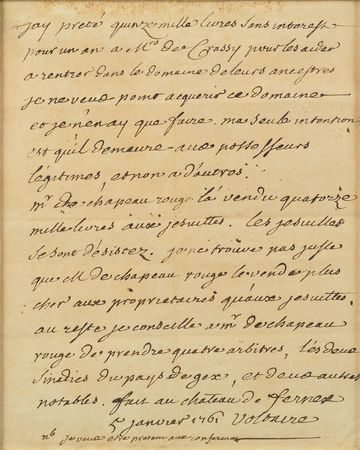 jay preté quinze mille livres sans interest
pour un an a Mrs de Crassy pour les aider
a rentrer dans le domaine de leurs ancestres
je ne veux point acquerir ce domaine
et je n'en ay que faire. ma seule intention
est quil demeure aux possesseurs
légitimes et non a dautres.
mr de chapeau rouge la vendu quatorze
mille livres aux jesuittes. les jesuittes
se sont désistez. je ne trouve pas juste
que M de chapeau rouge le vende plus
cher aux proprietaires qu'aux jesuittes.
au reste je conseille a mr de chapeau
rouge de prendre quatre arbitres, les deux
sindics du pays de gex, et deux autres
notables. fait au chateau de fernex
5 janvier 1761 Voltaire
nb je veux etre present aux conferences